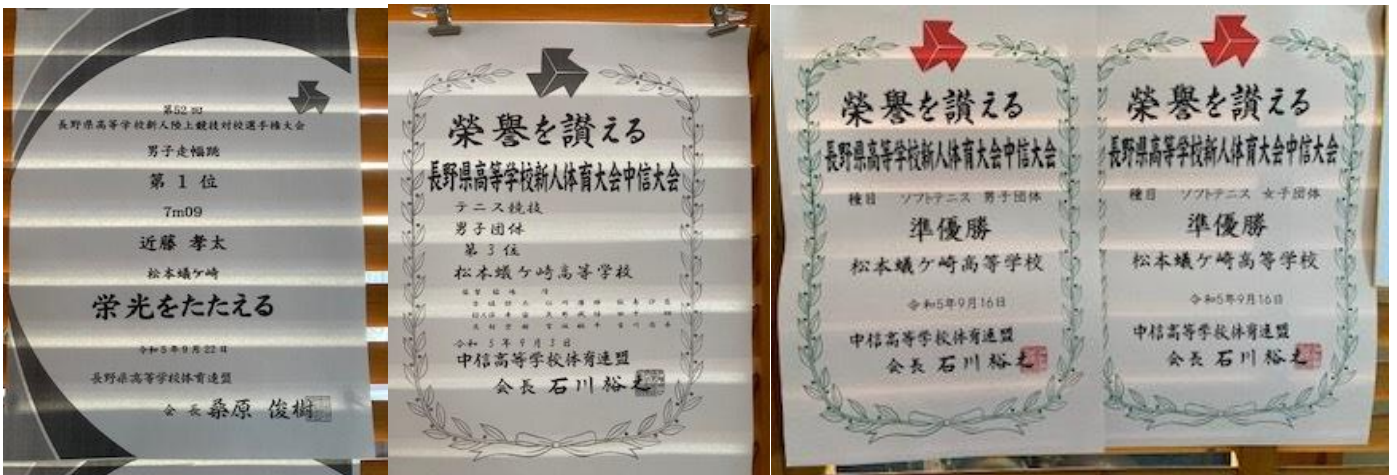 第52回
長野県高等学校新人陸上競技対校選手権大会
男子走幅跳
第1位
7m09
近藤 孝太
松本蟻ケ崎
栄光をたたえる
令和5年9月22日
長野県高等学校体育連盟
会長 桑原 俊樹
榮譽を讃える
長野県高等学校新人体育大会中信大会
テニス競技
男子団体
第3位
松本蟻ケ崎高等学校
令和5年9月3日
中信高等学校体育連盟
会長 石川裕之
榮譽を讃える
長野県高等学校新人体育大会中信大会
種目 ソフトテニス 男子団体
準優勝
松本蟻ケ崎高等学校
令和5年9月16日
中信高等学校体育連盟
会長 石川裕之
榮譽を讃える
長野県高等学校新人体育大会中信大会
種目 ソフトテニス 女子団体
準優勝
松本蟻ケ崎高等学校
令和5年9月16日
中信高等学校体育連盟
会長 石川裕之